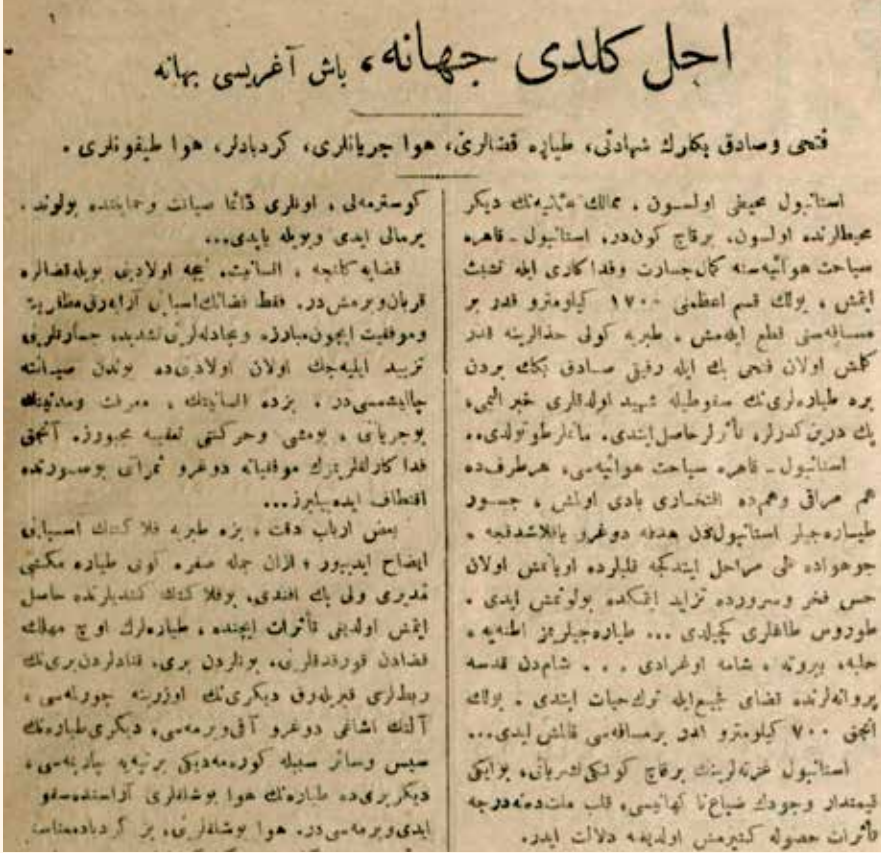 ١
اجل كلدی جهانه، باش آغریسی بهانه
فتحی وصادق بكلرك شهادتی، طیاره قضالری، هوا جریانلری، كردبادلر، هوا طیفونلری .
استانبول محیطی اولسون ، ممالك عثمانیه‌نك دیكر
محیطلرنده اولسون، برقاچ كون‌در، استانبول ـ قاهره
سیاحت هوائیه‌سنه كمال جسارت وفداكاری ایله تشبث
ایتمش ، بونك قسم اعظمنی ١٧٠٠ كیلومترو قدر بر
مسافه‌سنی قطع ایله‌مش ، طبریه كولی حذالرینه قدر
كلمش اولان فتحی بك ایله رفیقی صادق بكك بردن
بره طیاره‌لری‌نك سقوطیله شهید اولدقلری خبر الیمی،
پك درین كدرلر، تأثرلر حاصل ایتدی، ماتملر طوتولدی..
استانبول ـ قاهره سیاحت هوائیه‌سی، هر طرف‌ده
هم مراقی وهم‌ده افتخاری بادی اولمش ، جسور
طیاره‌جیلر استانبول‌دن هدفه دوغرو یاقلاشدقجه ،
جو هواده طی مراحل ایتدكجه قلبلرده اویانمش اولان
حس فخر وسرورده تزاید ایتمكده بولونمش ایدی .
طوروس طاغلری كچیلدی ... طیاره‌جیلریمز اطنه‌یه ،
حلبه، بیروته ، شامه اوغرادی . . . شام‌دن قدسه
پروانه‌لرنده قضای فجیع ایله ترك حیات ایتدی . بونك
انجق ٧٠٠ كیلومترو قدر بر مسافه‌سی قالمش ایدی...
استانبول غزته‌لرینك برقاچ كونكی نشریاتی، بو ایكی
قیمتدار وجودك ضیاع نا كهانیسی، قلب ملت‌ده نه درجه
تأثرات حصوله كتیرمش اولدیغنه دلالت ایدر.
كوسترمه‌لی ، اونلری دائما صیانت وحمایتنده بولوند
یرمالی ایدی وبویله یاپدی...
قضایه كلنجه ، انسانیت، نیجه اولادینی بویله قضالره
قربان ویرمش‌در. فقط قضانك اسبابی آرایه‌رق مظفریت
وموفقیت ایچون مبارزه ومجادله‌لرینی تشدید، جسارتلرینی
تزیید ایلیه‌جك اولان اولادینی‌ده بوندن صیانته
چالیشمسی‌در . بزده انسانیتك ، معرفت ومدنیتك
بو جریانی ، بو مشی وحركتنی تعقیبه مجبورز. آنجق
فداكارلقلریمزك موفقیاته دوغرو ثمراتی بو صورتده
اقتطاف ایده‌بیلیرز...
بعض ارباب دقت ، بزه طبریه فلاكتنك اسبابنی
ایضاح ایدییور ؛ ازان جمله صفره كونی طیاره مكتبی
مدیری ولی بك افندی، بو فلاكتك كندیلرنده حاصل
ایتمش اولدیغی تأثرات ایچنده ، طیاره‌لرك اوچ مهلك
قضادن قورقدقلرینی، بونلردن بری، قنادلردن بری‌نك
ربطلری قیریله‌رق دیكری‌نك اوزرینه چورلمه‌سی ،
آلتك اشاغی دوغرو آقی‌ویرمه‌سی، دیكری طیاره‌نك
سیس وسائر سببله كوره‌مه‌دیكی بر تپه‌یه چارپمه‌سی ،
دیكر بری‌ده طیاره‌نك هوا بوشلقلری آراسنده سقو
ایدی‌ویرمه‌سی‌در. هوا بوشلقلری، بز كردبادمناسب